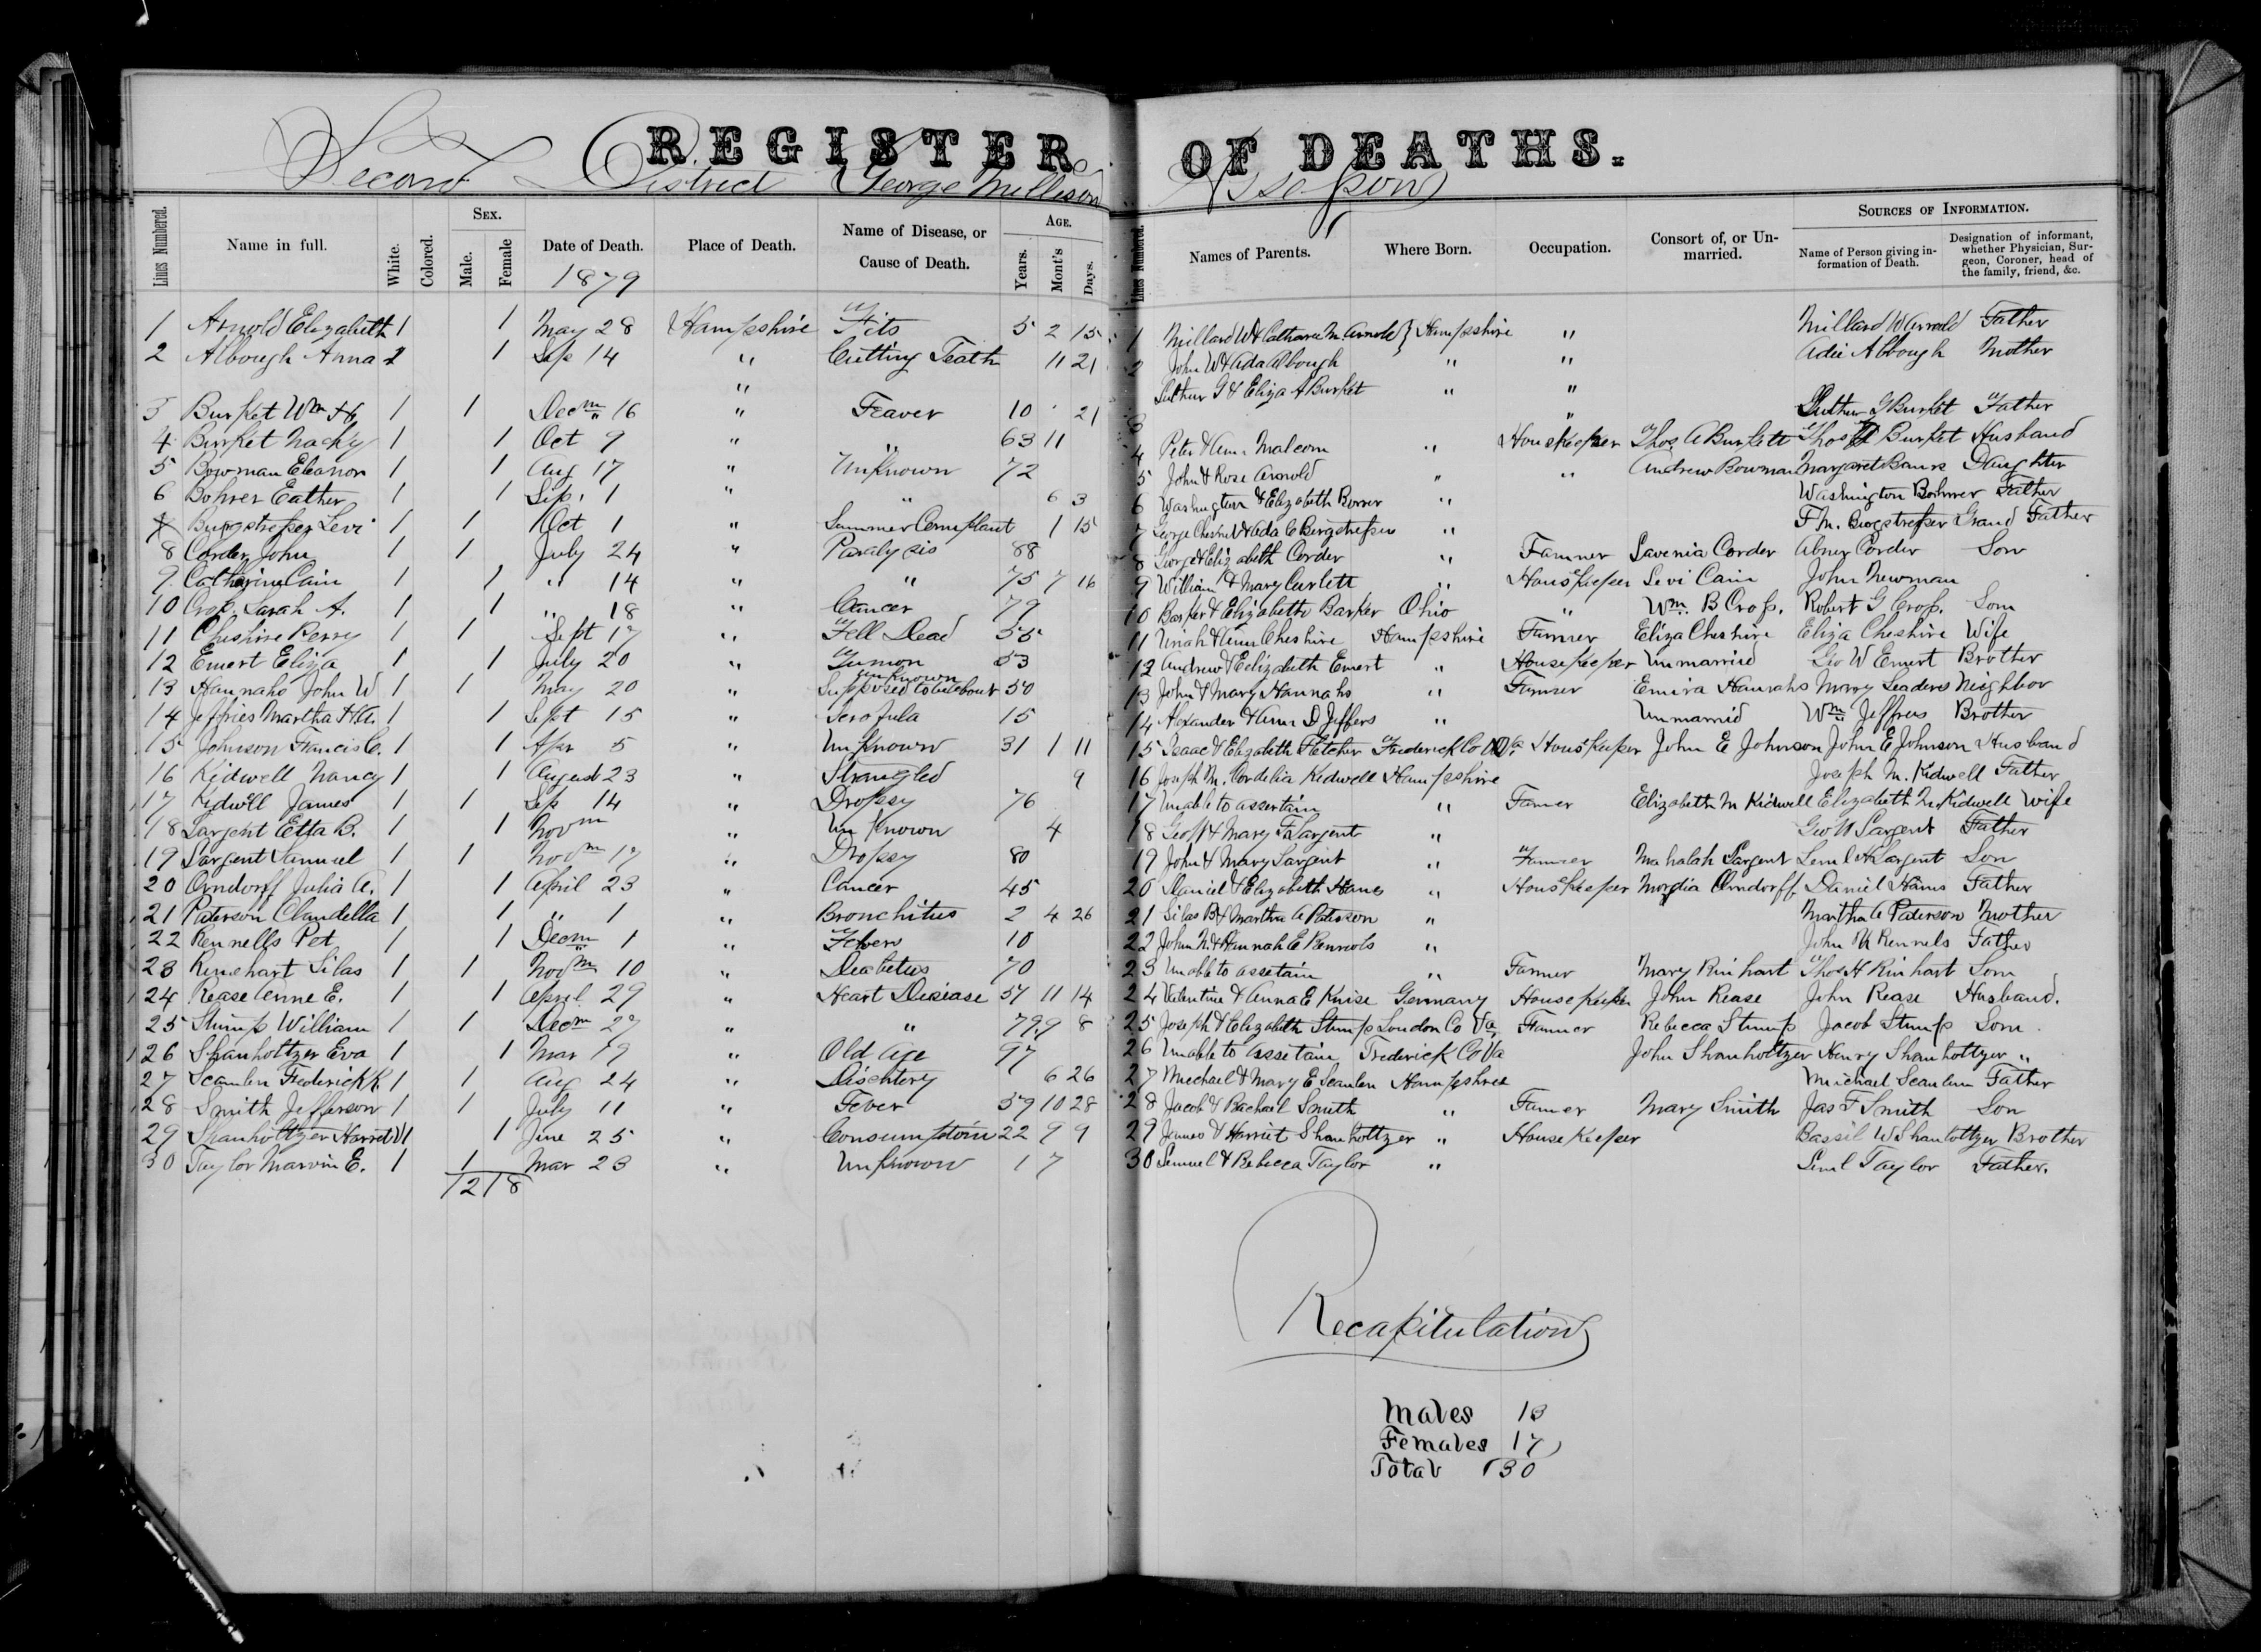 REGISTER OF DEATHS.
Second District George Millison Assessor
Lines Numbered. Name in full. White. Colored. SEX. Male. Female Date of Death. 1879 Place of Death. Name of Disease, or Cause of Death. AGE. Years. Mont's Days. Lines Numbered. Names of Parents. Where Born. Occupation. Consort of, or Unmarried. SOURCES OF INFORMATION. Name of Person giving information of Death. Designation of informant, whether Physician, Surgeon, Coroner, head of the family, friend, &c.
1 Arnold Elizabeth 1 1 May 28 Hampshire Fits 5 2 15 1 Millard W & Catharine M. Arnold } Hampshire " Millard W Arnold Father
2 Albough Anna 1 1 Sep 14 " Cutting Teath 11 21 2 John W & Ada Albough " " Adie Albough Mother
3 Burket Wm H. 1 1 Decm 16 " Feaver 10 21 3 Luthur G & Eliza A Burket " " Luther G Burket Father
4 Burket Nacky 1 1 Oct 9 " " 63 11 4 Peter & Ann Malcom " Houskeeper Thos A Burkett Thos A Burket Husband
5 Bowman Eleanor 1 1 Aug 17 " Unknown 72 5 John & Rose Arnold " " Andrew Bowman Margaret Daughter
6 Bohrer Eather 1 1 Sep. 1 " " 6 3 6 Washington & Elizabeth Borrer " Washington Bohrer Father
7 Burgstresser Levi 1 1 Oct 1 " Summer Complant 1 15 7 George & Ada C Burgstresser " F M. Burgstresser Grand Father
8 Corder John 1 1 July 24 " Paralysis 88 8 George & Elizabeth Corder " Farmer Lavenia Corder Abner Corder Son
9 Catharine Cain 1 1 " 14 " " 75 7 16 9 William & Mary Curlett " Houskeeper Levi Cain John Newman
10 Cross. Sarah A. 1 1 " 18 " Cancer 79 10 Barker & Elizabeth Barker Ohio " Wm. B Cross. Robert G Cross. Son
11 Cheshire Perry 1 1 Sept 17 " Fell Dead 55 11 Uriah & Ann Cheshire Hampshire Farmer Eliza Cheshire Eliza Cheshire Wife
12 Emert Eliza 1 1 July 20 " Tumor 53 12 Andrew & Elizabeth Emert " Housekeeper Unmarried Geo W Emert Brother
13 Hannahs John W 1 1 May 20 " unknown Supposed to be about 50 13 John & Mary Hannahs " Farmer Emira Hannahs Mary Leaders Neighbor
14 Jeffries Martha H.A. 1 1 Sept 15 " Scrofula 15 14 Alexander & Ann D Jeffers " Unmarried Wm Jeffries Brother
15 Johnson Francis C. 1 1 Apr 5 " Unknown 31 1 11 15 Isaac & Elizabeth Fletcher Frederick Co Va. Houskeeper John E Johnson John E Johnson Husband
16 Kidwell Nancy 1 1 August 23 " Strangled 9 16 Joseph M. Cordelia Kidwell Hampshire Joseph M. Kidwell Father
17 Kidwell James 1 1 Sep 14 " Dropsy 76 17 Unable to assertain " Farmer Elizabeth M Kidwell Elizabeth M Kidwell Wife
18 Sargent Etta B. 1 1 Novm " Unknown 4 18 Geo W & Mary F Sargent " Geo W Sargent Father
19 Sargent Samuel 1 1 Novm 17 " Dropsy 80 19 John & Mary Sargent " Farmer Mahalah Sargent Leml H Sargent Son
20 Orndorff Julia A. 1 1 April 23 " Cancer 45 20 Daniel & Elizabeth Hanes " Houskeeper Mordia Orndorff Daniel Hains Father
21 Paterson Claudella 1 1 " 1 " Bronchitus 2 4 26 21 Silas B & Martha A Paterson " Martha A Paterson Mother
22 Rennells Pet 1 1 Decm 1 " Fever 10 22 John N. & Hannah E Rennols " John N Rennels Father
23 Rinehart Silas 1 1 Novm 10 " Deabetus 70 23 Unable to assetain " Farmer Mary Rinhart Thos H Rinhart Son
24 Rease Anne E. 1 1 April 29 " Heart Desiase 57 11 14 24 Valentine & Anna E Knise Germany Housekeeper John Rease John Rease Husband.
25 Stump William 1 1 Decm 27 " " 79 9 8 25 Joseph & Elizabeth Stump Loudon Co Va Farmer Rebecca Stump Jacob Stump Son
26 Shanholtzer Eva 1 1 Mar 19 " Old Age 97 26 Unable to assetain Frederick Co Va John Shanholtzer Henry Shanholtzer "
27 Scanlen Frederick K 1 1 Aug 24 " Disentery 6 26 27 Mechael & Mary E Scanlen Hampshree Michael Scanlen Father
28 Smith Jefferson 1 1 July 11 " Fever 59 10 28 28 Jacob & Rachael Smith " Farmer Mary Smith Jas F Smith Son
29 Shanholtzer Harriet V 1 1 June 25 " Consumption 22 9 9 29 James & Harriet Shanholtzer " Housekeeper Bassil W Shanholtzer Brother
30 Taylor Marvin E. 1 1 Mar 23 " Unknown 1 7 30 Lemuel & Rebecca Taylor " Leml Taylor Father.
12 18
Recapitulation
Males 13
Females 17
Total 30